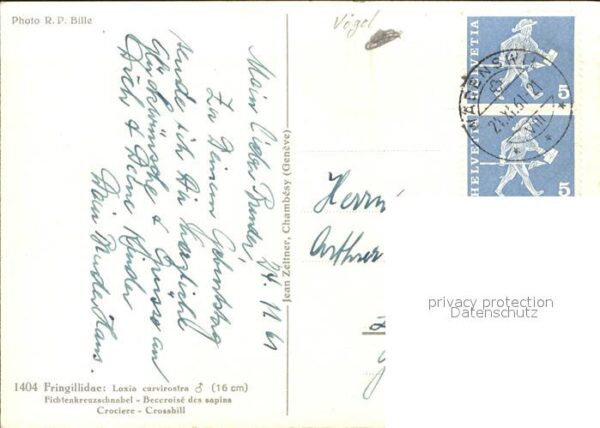 Photo R. P. Bille
Vögel
HELVETIA 5
HELVETIA 5
24. XI. 61
VIII
Mein lieber Bruder, 24. 11. 61
Zu Deinem Geburtstag
sende ich Dir herzliche
Glückwünsche & Grüsse an
Dich & Deine Kinder
Dein Bruder Hans.
Jean Zeltner, Chambésy (Genève)
Herrn
Arthur
privacy protection
Datenschutz
1404 Fringillidae: Loxia curvirostra ♂ (16 cm)
Fichtenkreuzschnabel - Beccroisé des sapins
Crociere - Crossbill